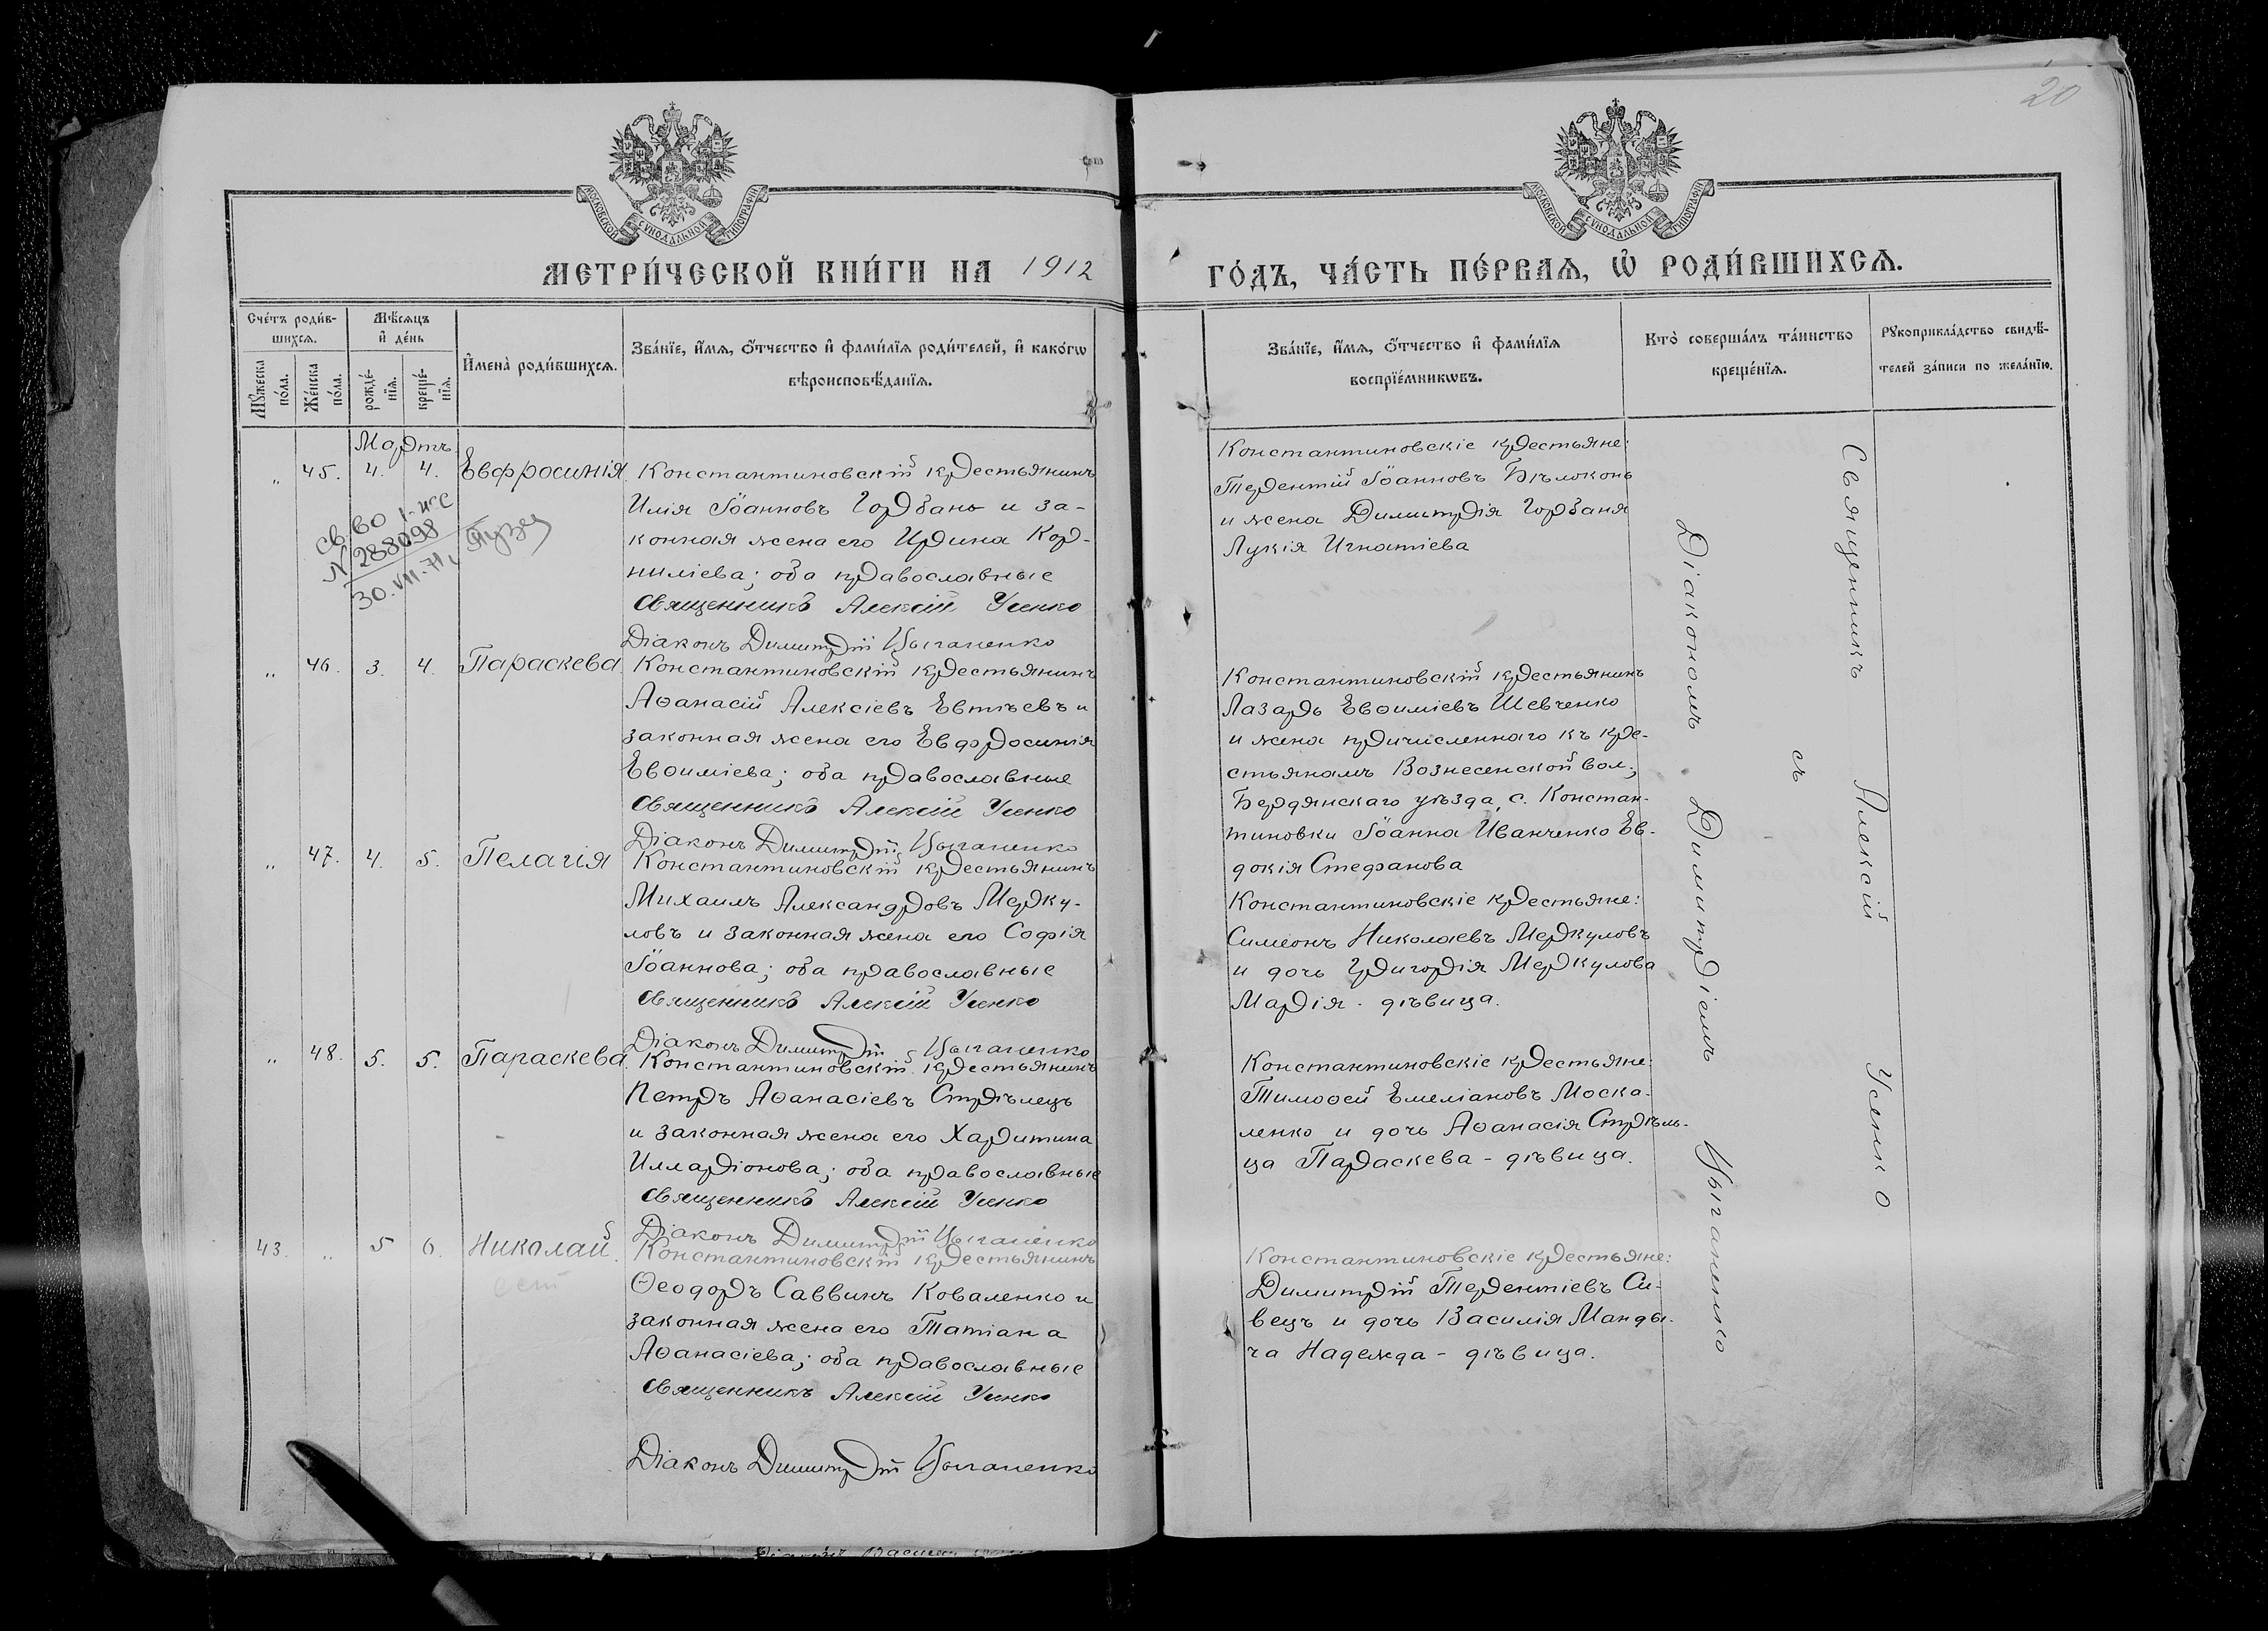 20
МОСКОВСКОЙ СѴНОДАЛЬНОЙ ТИПОГРАФІИ
МОСКОВСКОЙ СѴНОДАЛЬНОЙ ТИПОГРАФІИ
МЕТРИ́ЧЕСКОЙ КНИ́ГИ НА 1912
ГО́ДЪ, ЧА́СТЬ ПЕ́РВАѦ, Ѡ РОДИ́ВШИХСѦ.
Сче́тъ роди́в-
шихсѧ.
Мꙋ́жеска
по́ла.
Же́нска
по́ла.
Мѣ́сѧцъ
и҆ де́нь
рожде́-
нїѧ.
креще́-
нїѧ.
И҆мена̀ роди́вшихсѧ.
Зва́нїе, и҆́мѧ, ѻ҆́тчество и҆ фами́лїѧ роди́телей, и҆ како́гѡ
вѣроисповѣ́данїѧ.
Зва́нїе, и҆́мѧ, ѻ҆́тчество и҆ фами́лїѧ
воспрїе́мникѡвъ.
Кто̀ соверша́лъ та́инство
креще́нїѧ.
Рꙋкоприкла́дство свидѣ́-
телей за́писи по жела́нїю.
Мартъ
„ 45. 4. 4. Евфросинія
Константиновскій крестьянинъ
Илія Іоанновъ Горбань и за-
конная жена его Ирина Кор-
ниліева; оба православные
Священникъ Алексій Усенко
Діаконъ Димитрій Цыганенко
св-во I-ЖС
N 288098
30.VII-71,
Константиновскіе крестьяне:
Терентій Іоанновъ Бѣлоконь
и жена Димитрія Горбаня
Лукія Игнатіева
„ 46. 3. 4. Параскева.
Константиновскій крестьянинъ
Аѳанасій Алексіевъ Евтѣевъ и
законная жена его Евфросинія
Евѳиміева; оба православные
Священникъ Алексій Усенко
Діаконъ Димитрій Цыганенко
Константиновскій крестьянинъ
Лазарь Евѳиміевъ Шевченко
и жена причисленнаго къ кре-
стьянамъ Вознесенской вол.,
Бердянскаго уѣзда, с. Констан-
тиновки Іоанна Иванченко Ев-
докія Стефанова
„ 47. 4. 5. Пелагія
Константиновскій крестьянинъ
Михаилъ Александровъ Мерку-
ловъ и законная жена его Софія
Іоаннова; оба православные
Священникъ Алексій Усенко
Діаконъ Димитрій Цыганенко
Константиновскіе крестьяне:
Симеонъ Николаевъ Меркуловъ
и дочь Григорія Меркулова
Марія - дѣвица.
„ 48. 5. 5. Параскева.
Константиновскій крестьянинъ
Петръ Аѳанасіевъ Стрѣлецъ
и законная жена его Харитина
Илларіонова; оба православные
Священникъ Алексій Усенко
Діаконъ Димитрій Цыганенко
Константиновскіе крестьяне:
Тимоѳей Емеліановъ Моска-
ленко и дочь Аѳанасія Стрѣль-
ца Параскева - дѣвица.
43. „ 5 6. Николай.
Константиновскій крестьянинъ
Ѳеодоръ Саввинъ Коваленко и
законная жена его Татіана
Аѳанасіева; оба православные
Священникъ Алексій Усенко
Діаконъ Димитрій Цыганенко
Константиновскіе крестьяне:
Димитрій Терентіевъ Си-
вецъ и дочь Василія Манды-
ча Надежда - дѣвица.
Священникъ Алексій Усенко
съ
Діакономъ Димитріемъ Цыганенко